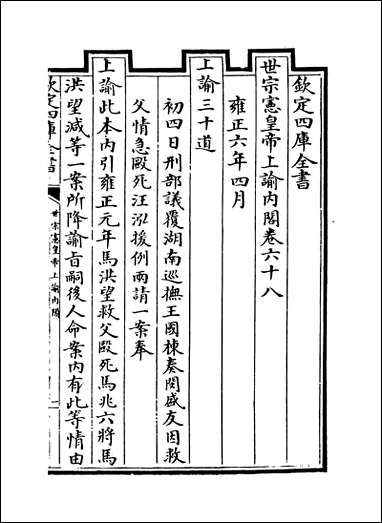 欽定四庫全書
世宗憲皇帝上諭內閣卷六十八
雍正六年四月
上諭三十道
初四日刑部議覆湖南巡撫王國棟奏閔盛友因救
父情急毆死汪泓援例兩請一案奉
上諭此本內引雍正元年馬洪望救父毆死馬兆六將馬
洪望減等一案所降諭旨嗣後人命案內有此等情由
欽定四庫全書
世宗憲皇帝上諭內閣